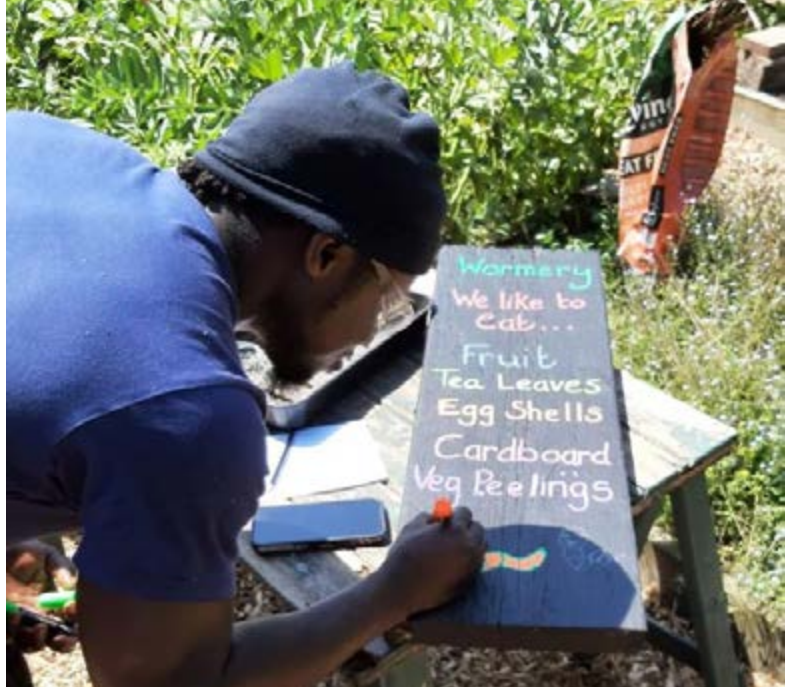 Wormery
We like to
eat...
Fruit
Tea Leaves
Egg Shells
Cardboard
Veg Peelings